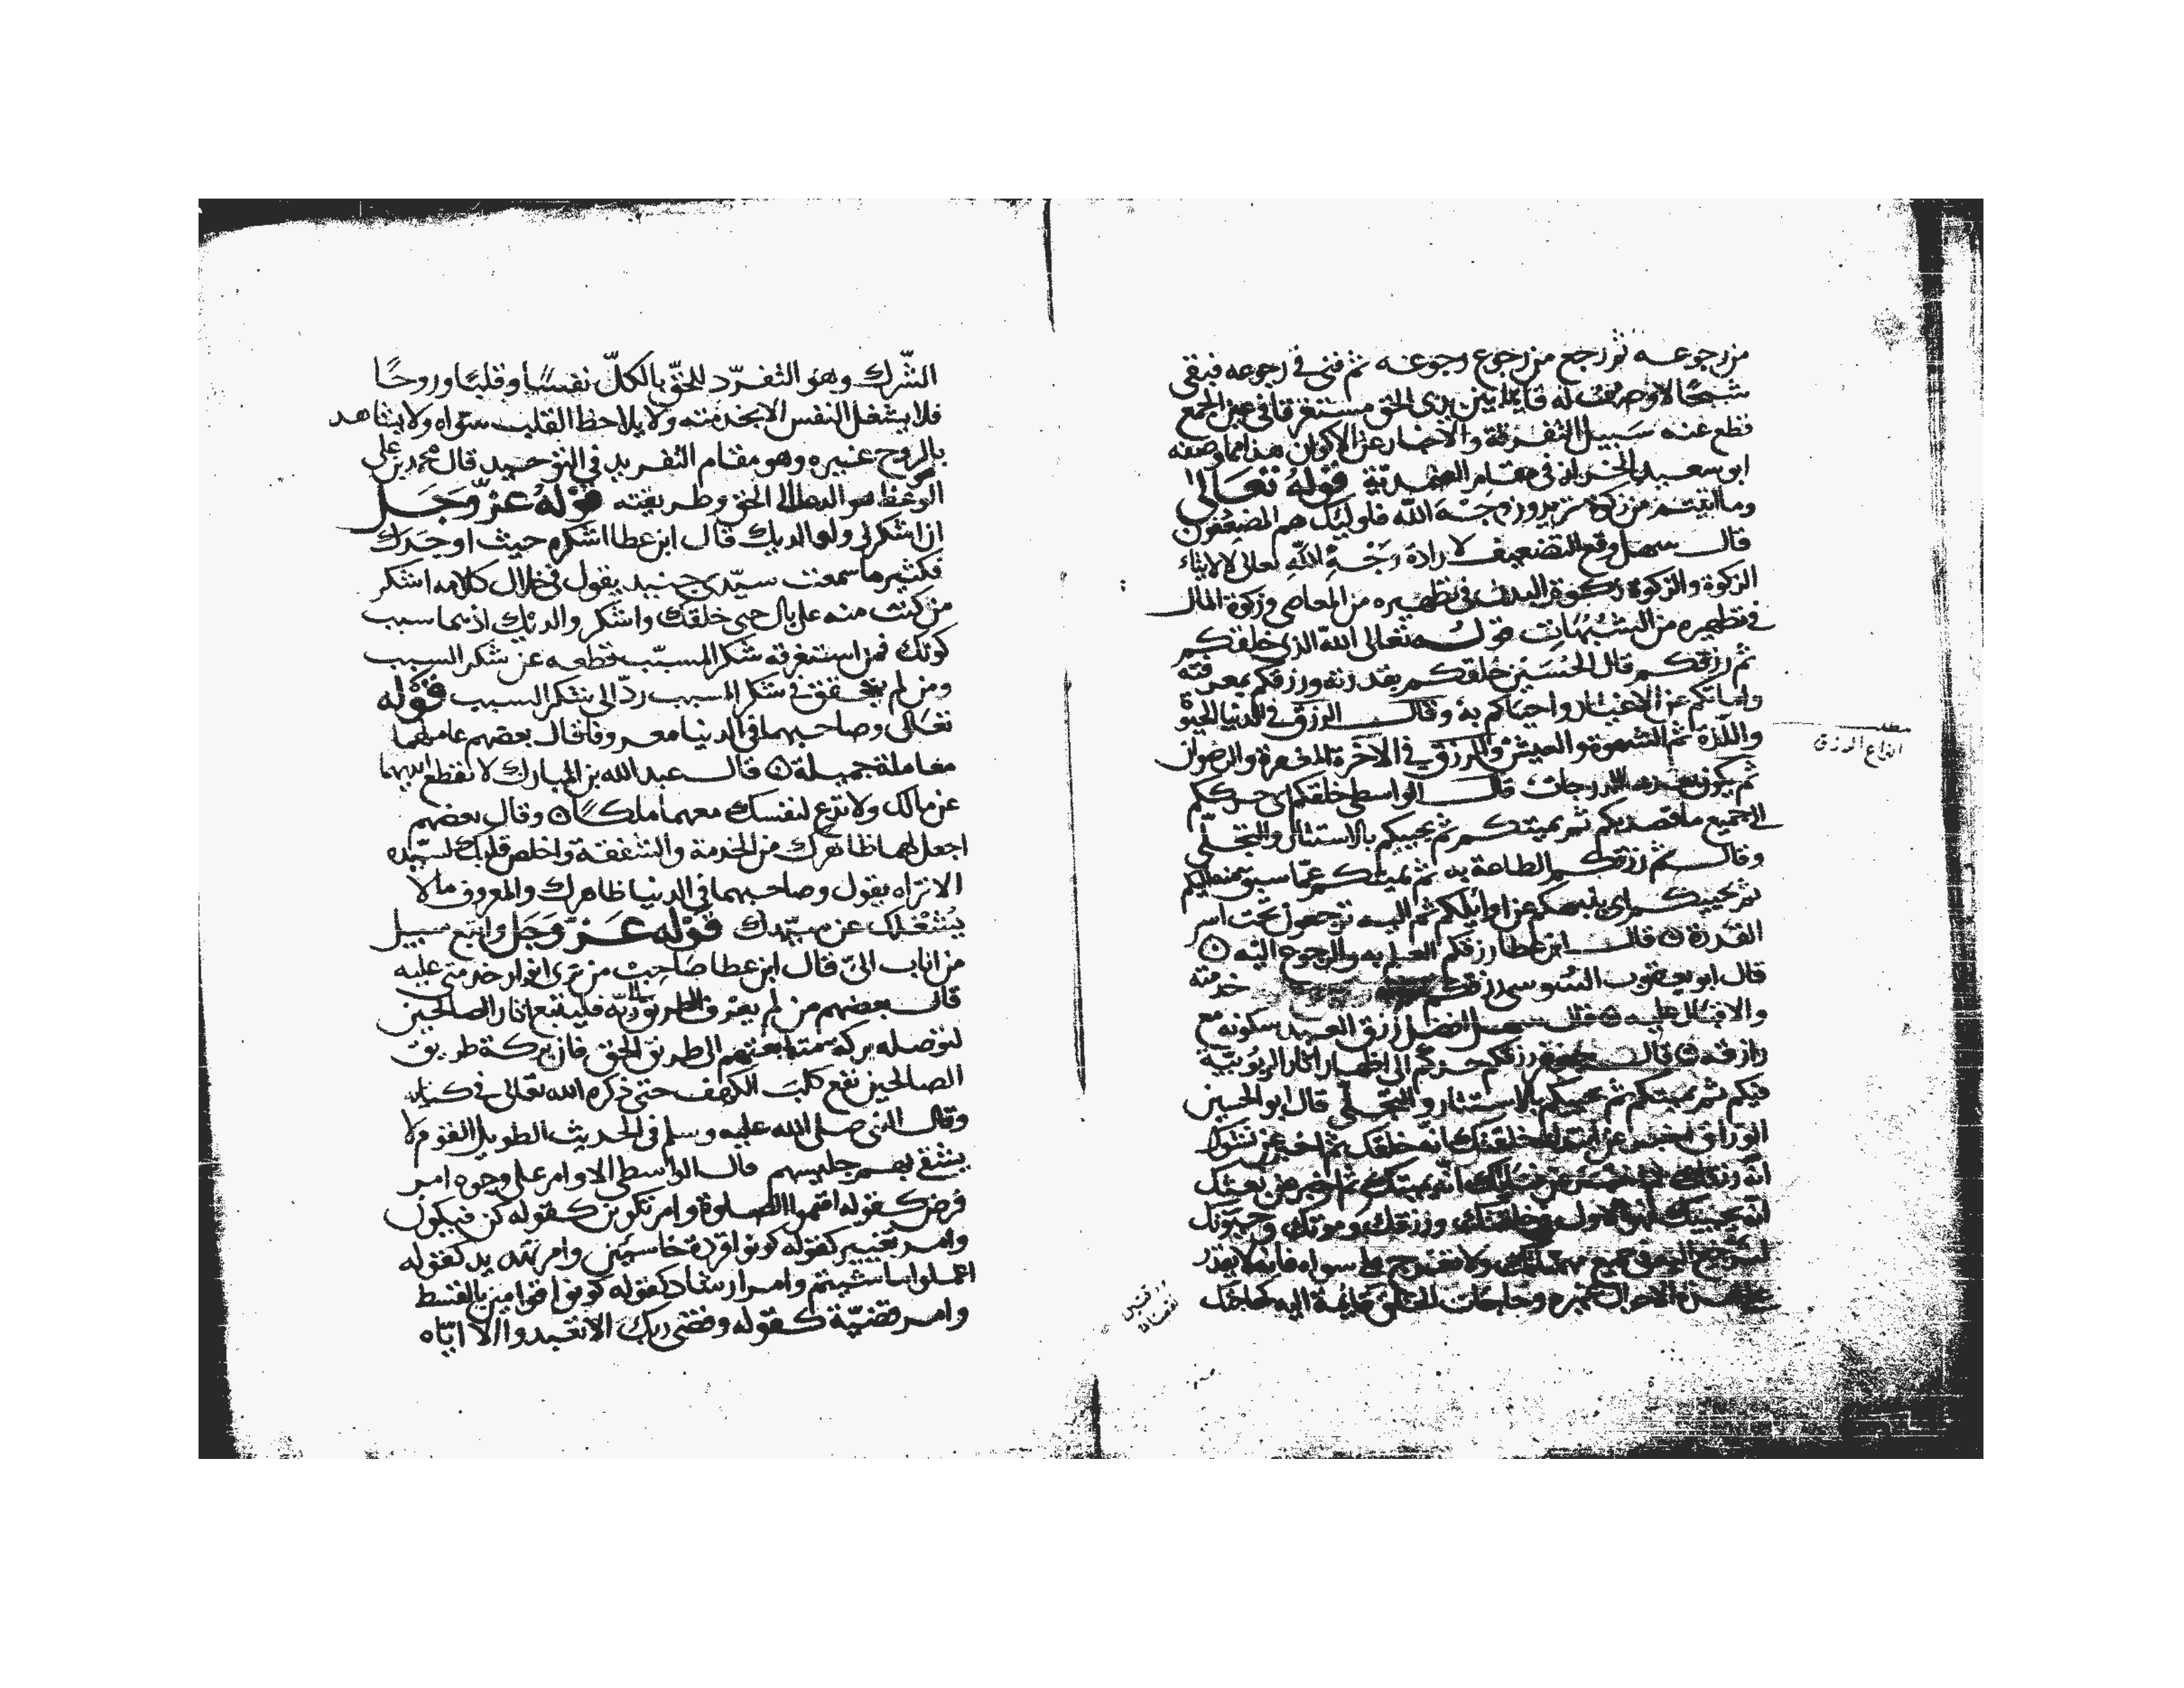 من رجوعه ثم رجع من رجوع رجوعه ثم فنى في رجوعه فبقى
شبحًا لا وصف له قايمًا بين يدى الحق مستغرقا في عين الجمع
قطع عنه سبيل التفرقة والاخبار عن الاكوان هذا لما وصفه
ابو سعيد الخراز في مقام الصمدية قوله تعالى
وما اتيتم من زكوة تريدون وجه الله فاوليك هم المضعفون
قال سهل وقع التضعيف لارادة وجه الله تعالى لا لايتاء
الزكوة والزكوة زكوة البدن في تطهيره من المعاصى وزكوة المال
في تطهيره من الشبهات قوله تعالى الله الذى خلقكم
ثم رزقكم قال الحسين خلقكم بقدرته ورزقكم بمعرفته
واماتكم عن الاغيار واحياكم به وقال الرزق في الدنيا الحيوة
واللذة ثم الشهوة والعيش والرزق في الاخرة المغفرة والرضوان
ثم يكون بعده الدرجات قال الواسطى خلقكم اى حرككم
الجميع ما قصد بكم ثم يميتكم ثم يحييكم بالاستتار والتجلى
وقال ثم رزقكم الطاعة به ثم يميتكم عما سبق منه اليكم
ثم يحييكم اى ينبهكم عن اوايلكم ثم اليه ترجعون تحت اسر
القدرة قال ابن عطا رزقكم العلم به والرجوع اليه
قال ابو يعقوب السوسى رزقكم خدمته
والاقبال عليه قال سهل افضل رزق العبد سكونه مع
رازقه قال رزقكم حرككم الى اظهار اثار الربوبية
فيكم ثم يميتكم ثم يحييكم بالاستتار والتجلى قال ابو الحسين
الوراق اخبر عن ابتداء خلقتك انه خلقك ثم اخبر عن
انه رزقك انه يميتك ثم اخبر عن بعثك
انه يحييك خلقتك ورزقك وموتك وحيوتك
لترجع اليه في جميع مهماتك ولا تعرج على سواه فانه لا يقدر
هذه الاحوال غيره وحاجات الخلق قايمة اليه كحاجتك
مطلب
انواع الرزق
الشرك وهو التفرد للحق بالكل نفسًا وقلبًا وروحًا
فلا يشغل النفس الا بخدمته ولا يلاحظ القلب سواه ولا يشاهد
بالروح غيره وهو مقام التفريد في التوحيد قال محمد بن على
الوعظ هو الدعا الى الحق وطريقته قوله عز وجل
ان اشكر لى ولوالديك قال ابن عطا اشكره حيث اوجدك
فكثير ما سمعت سيدى جنيد يقول في خلال كلامه اشكر
من كنت منه على بال حتى خلقك واشكر والديك اذ هما سبب
كونك فمن استغرقه شكر المسبب قطعه عن شكر السبب
ومن لم يتحقق في شكر المسبب ردّ الى شكر السبب قوله
تعالى وصاحبهما في الدنيا معروفا قال بعضهم عاملهما
معاملة جميلة قال عبد الله بن المبارك لا تقطع اسهما
عن مالك ولا ترع لنفسك معهما ملكًا وقال بعضهم
اجعل لهما ظاهرك من الخدمة والشفقة واخلص قلبك لسيده
الا تراه يقول وصاحبهما في الدنيا ظاهرك والمعروف ما لا
يشغلك عن سيدك قوله عز وجل واتبع سبيل
من اناب الىّ قال ابن عطا صاحب من ترى انوار خدمتى عليه
قال بعضهم من لم يعرف الطريق الى ربه فليتبع اثار الصالحين
لتوصله بركة متابعتهم الى طريق الحق فان بركة طريق
الصالحين نفع كلب الكهف حتى ذكره الله تعالى في كتابه
وقال النبى صلى الله عليه وسلم في الحديث الطويل القوم لا
يشقى بهم جليسهم قال الواسطى الاوامر على وجوه امر
فرض كقوله اقيموا الصلوة وامر تكوين كقوله كن فيكون
وامر تغيير كقوله كونوا قردة خاسئين وامر تهديد كقوله
اعملوا ما شيتم وامر ارشاد كقوله كونوا قوامين بالقسط
وامر قضية كقوله وقضى ربك الا تعبدوا الا اياه